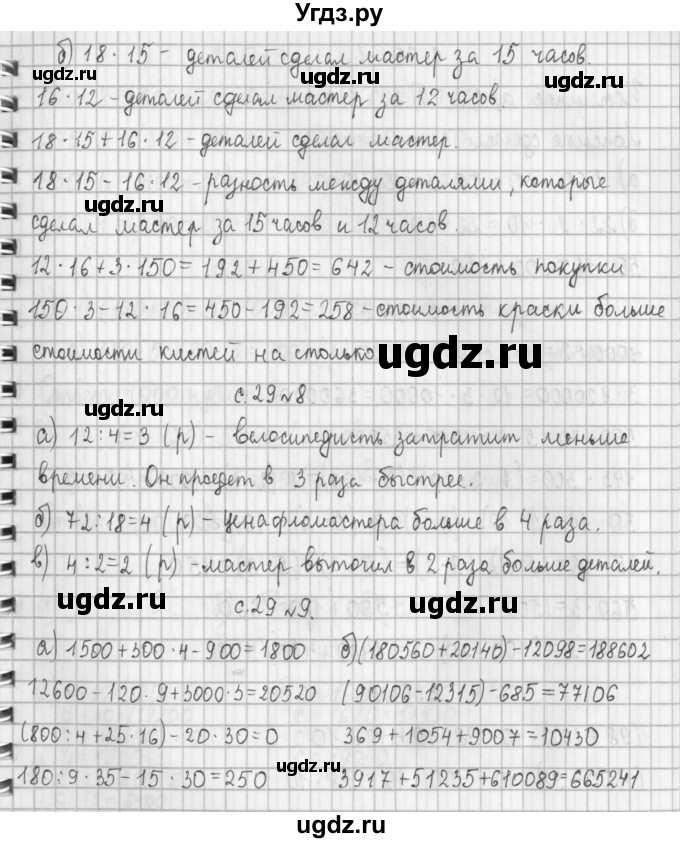 Угдз.ру
б) 18 · 15 – деталей сделал мастер за 15 часов.
ugdz.ru ugdz.ru ugdz.ru
16 · 12 – деталей сделал мастер за 12 часов.
18 · 15 + 16 · 12 – деталей сделал мастер.
18 · 15 – 16 · 12 – разность между деталями, которые
ugdz.ru
сделал мастер за 15 часов и 12 часов.
12 · 16 + 3 · 150 = 192 + 450 = 642 – стоимость покупки
150 · 3 – 12 · 16 = 450 – 192 = 258 – стоимость краски больше
стоимости кистей на столько
ugdz.ru
с. 29 № 8.
ugdz.ru
а) 12 : 4 = 3 (р) – велосипедисть затратит меньше
времени. Он проедет в 3 раза быстрее.
б) 72 : 18 = 4 (р) – цена фломастера больше в 4 раза.
в) 4 : 2 = 2 (р) – мастер выточил в 2 раза больше деталей.
ugdz.ru ugdz.ru
с. 29 № 9.
а) 1500 + 300 · 4 – 900 = 1800 б) (180560 + 20140) – 12098 = 188602
12600 – 120 · 9 + 3000 · 3 = 20520 (90106 – 12315) – 685 = 77106
(800 : 4 + 25 · 16) – 20 · 30 = 0 369 + 1054 + 9007 = 10430
180 : 9 · 35 – 15 · 30 = 250 3917 + 51235 + 610089 = 665241
ugdz.ru
ugdz.ru